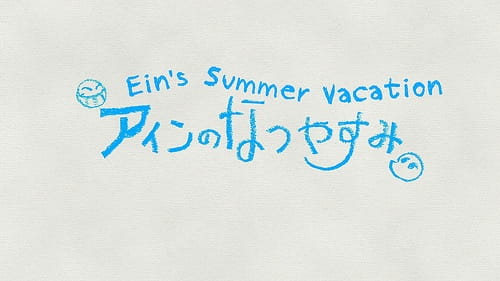 Ein's Summer Vacation
アインのなつやすみ